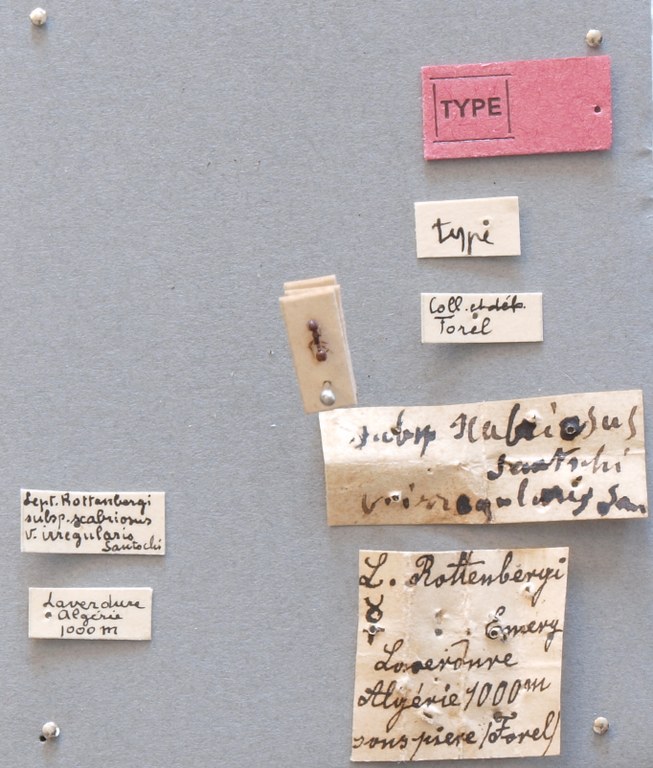 TYPE
type
Coll. et dép.
Forel
subsp scabriosus
Santschi
v. irregularis San
Lept. Rottenbergi
subsp. scabriosus
v. irregularis
Santschi
Laverdure
Algérie
1000 m
L. Rottenbergi
☿ Emery
Laverdure
Algérie 1000m
sous piere (Forel)